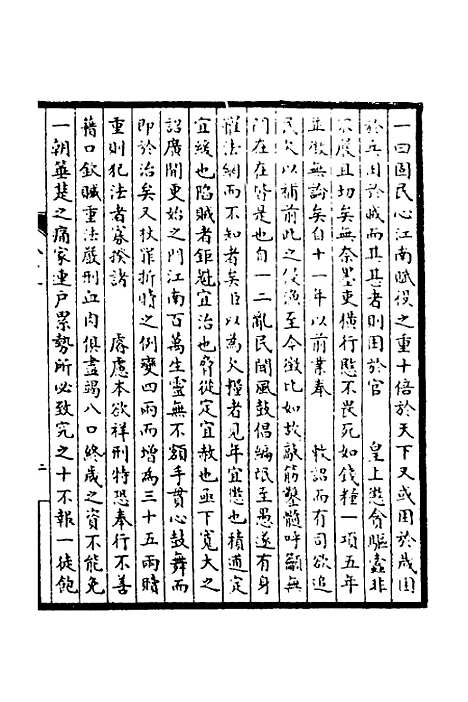 一曰固民心江南賦役之重十倍於天下又或困於歲困
於兵困於賊而其甚者則困於官　皇上懲貪驅蠹非
不嚴且切矣無奈墨吏橫行愍不畏死如錢糧一項五年
並徵無論矣自十一年以前業奉　敕詔而有司欲追
民欠以補前此之侵漁至今徵比如故敲筋擊髓呼籲無
門在在皆是也自一二亂民間風鼓倡編氓至愚遂有身
罹法網而不知者矣臣以為欠糧者見年宜懲也積逋定
宜緩也陷賊者鉅冠宜治也脅從定宜赦也亟下寬大之
詔廣開更始之門江南百萬生靈無不額手貫心鼓舞而
即於治矣又杖罪折時之例變四兩而增為三十五兩時
重則犯法者寡揆諸　睿慮本欲祥刑特恐奉行不善
藉口欽贓重法嚴刑血肉俱盡竭八口終歲之資不能免
一朝箠楚之痛家連戶累勢所必致究之十不報一徒飽
二